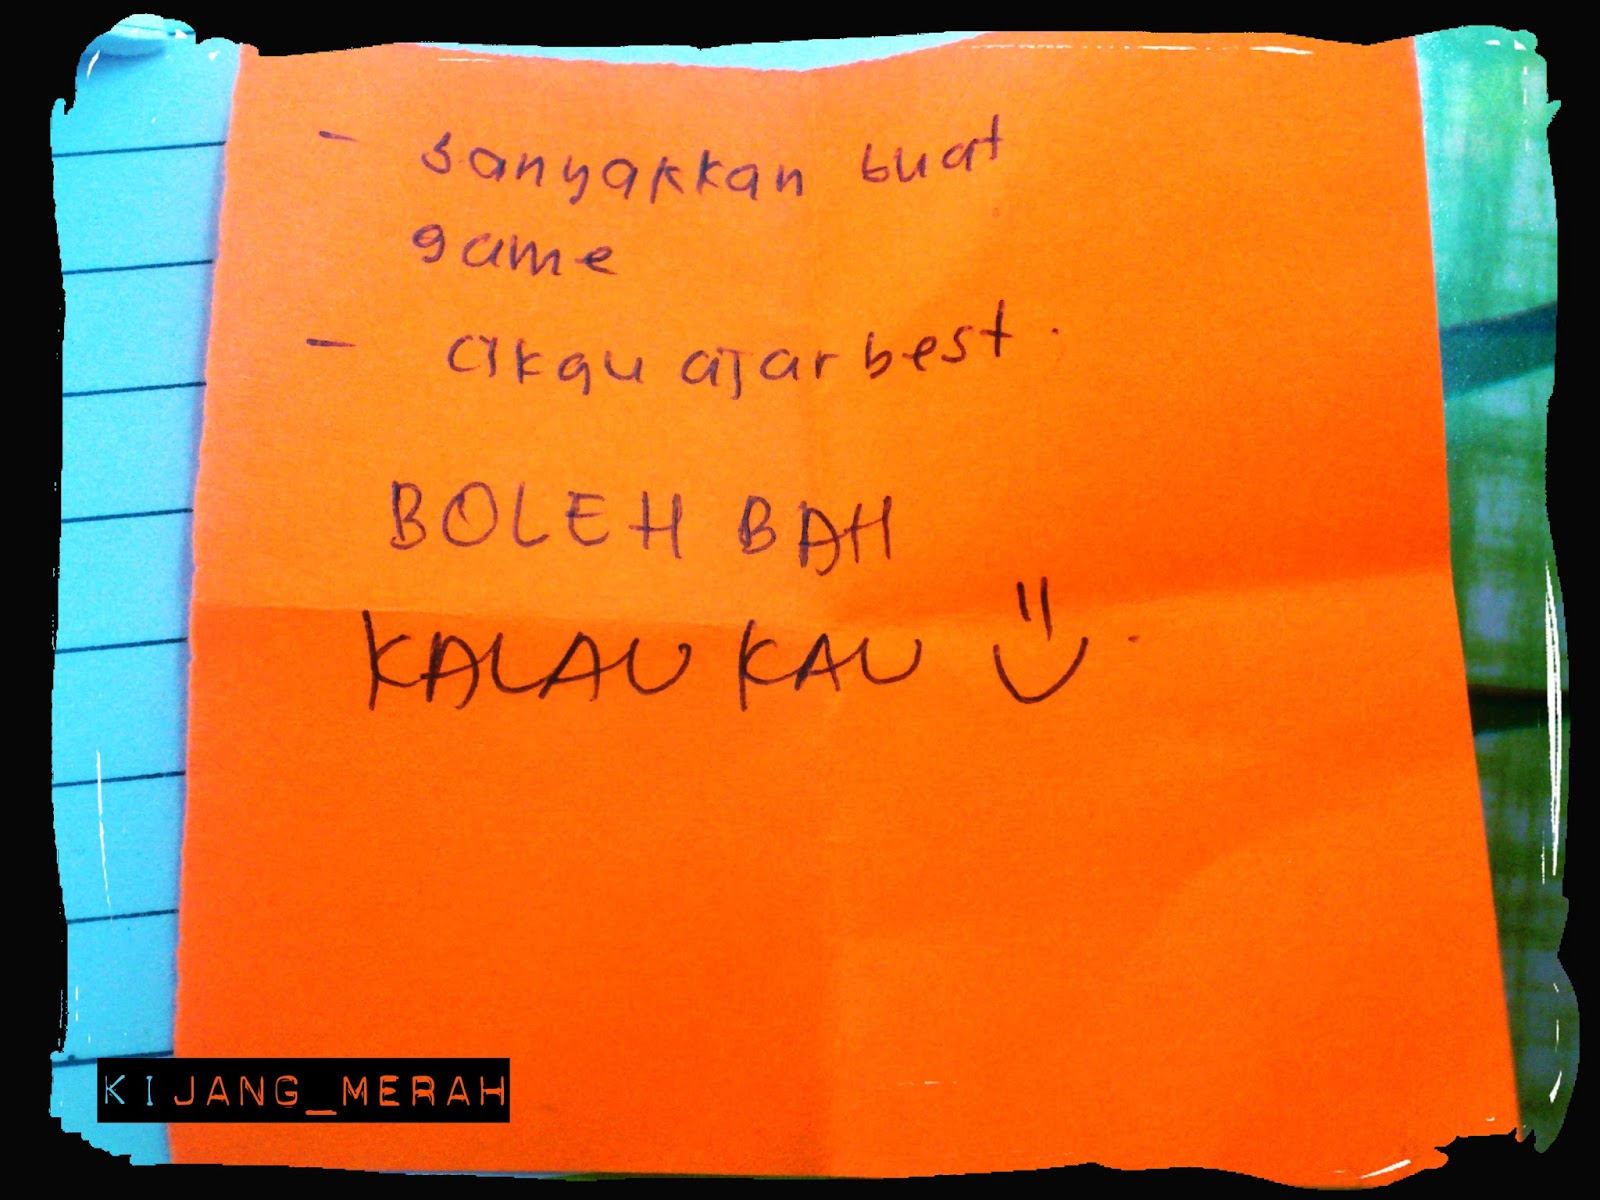 - banyakkan buat
game
- cikgu ajar best.
BOLEH BAH
KALAU KAU
KIJANG_MERAH